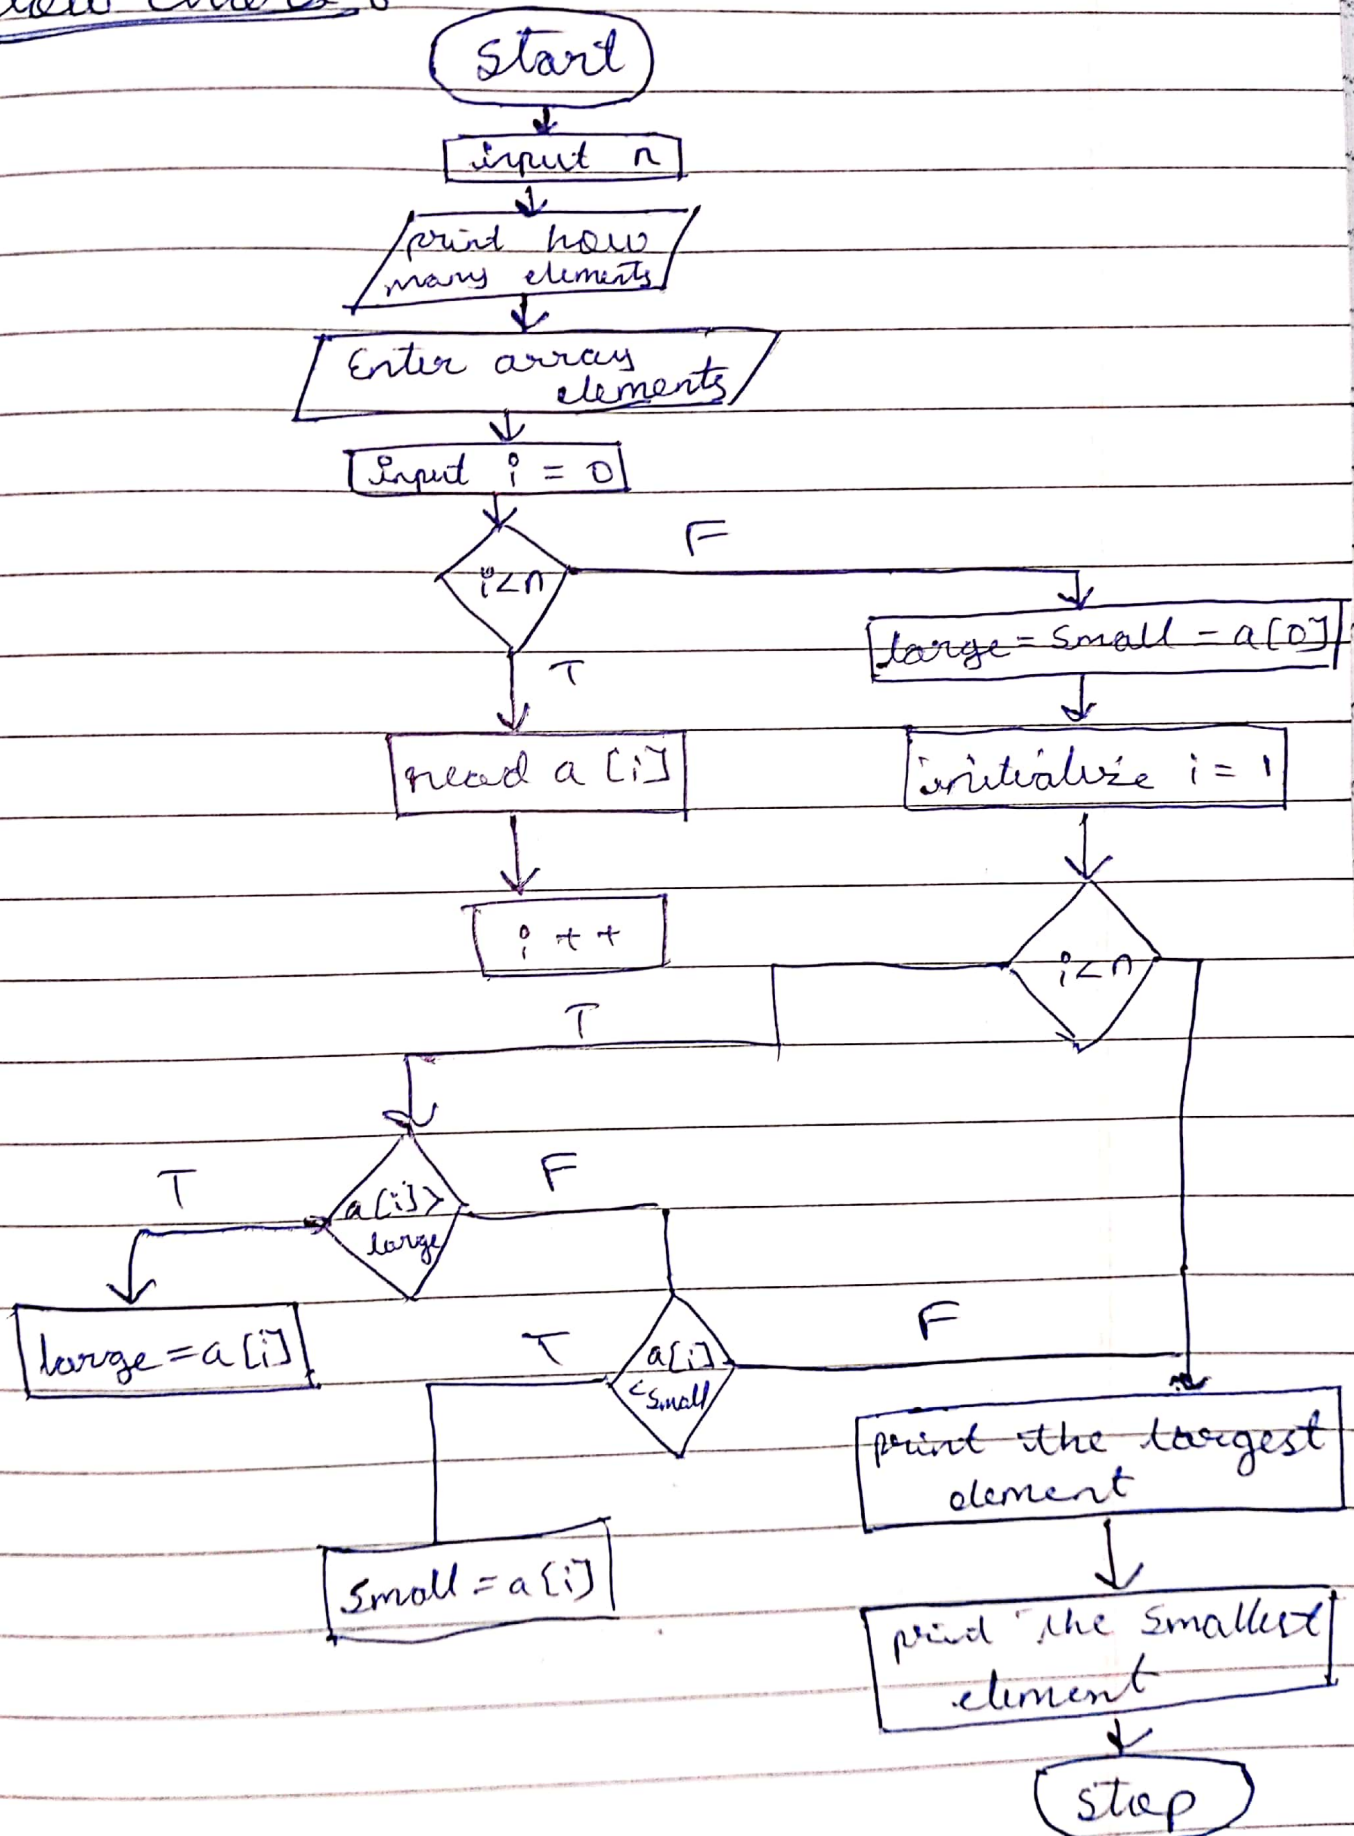 Start
input n
print how
many elements
Enter array
elements
input i = 0
i<n
F
T
large = small = a[0]
read a [i]
initialize i = 1
i + +
i<n
T
a[i]>
large
T
F
large = a[i]
a[i]
<small
T
F
small = a[i]
print the largest
element
print the smallest
element
stop